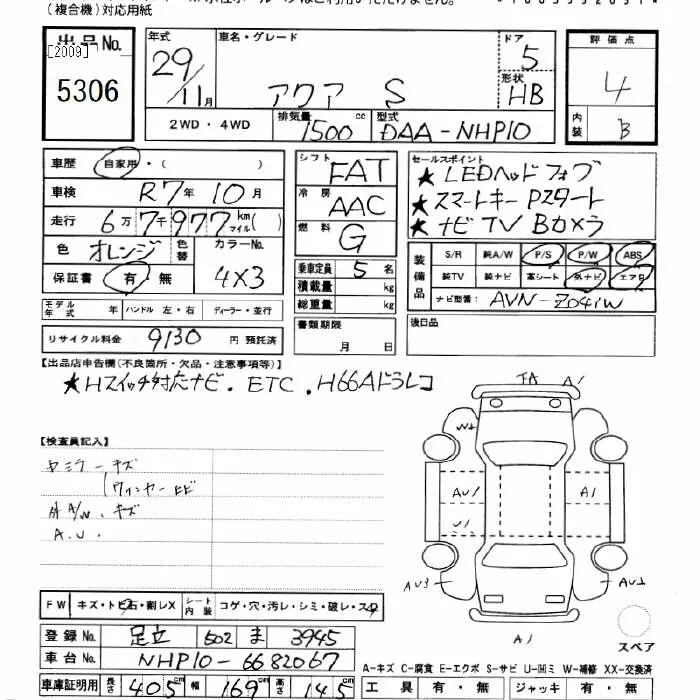 (複合機)対応用紙
出品No.
[2009]
5306
年式 29/11月
車名・グレード アクア S
ドア 5
形状 HB
2WD・4WD
排気量 1500 cc
型式 DAA-NHP10
評価点 4
内装 B
車歴 自家用・( )
車検 R7年10月
走行 6万7千977 km マイル( )
色 オレンジ 色替 カラーNo. 4X3
保証書 有・無
モデル年式 年 ハンドル 左・右 ディーラー・並行
リサイクル料金 9130 円 預託済
シフト FAT
冷房 AAC
燃料 G
乗車定員 5 名
積載量 kg
総重量 kg
書類期限 月 日
セールスポイント
★LEDヘッド フォグ
★スマートキー Pスタート
★ナビTV Bカメラ
装備品 S/R 純A/W P/S P/W ABS
純TV 純ナビ 革シート 外ナビ エアロ
ナビ型番: AVN-Z04iW
後日品
【出品店申告欄(不良箇所・欠品・注意事項等)】
★Hスイッチ対応ナビ. ETC. H66Aドラレコ
【検査員記入】
キズ
外A/W. キズ
A.U.
FW キズ・トビ石・割レX シート内装 コゲ・穴・汚レ・シミ・破レ・スレ
登録No. 足立 502 ま 3945
車台No. NHP10-6682067
車庫証明用 長さ 405 cm 幅 169 cm 高さ 145 cm
A1
W2
AU1
A1
U1
AU3
A1
スペア
A-キズ C-腐食 E-エクボ S-サビ U-凹ミ W-補修 XX-交換済
工具 有・無 ジャッキ 有・無